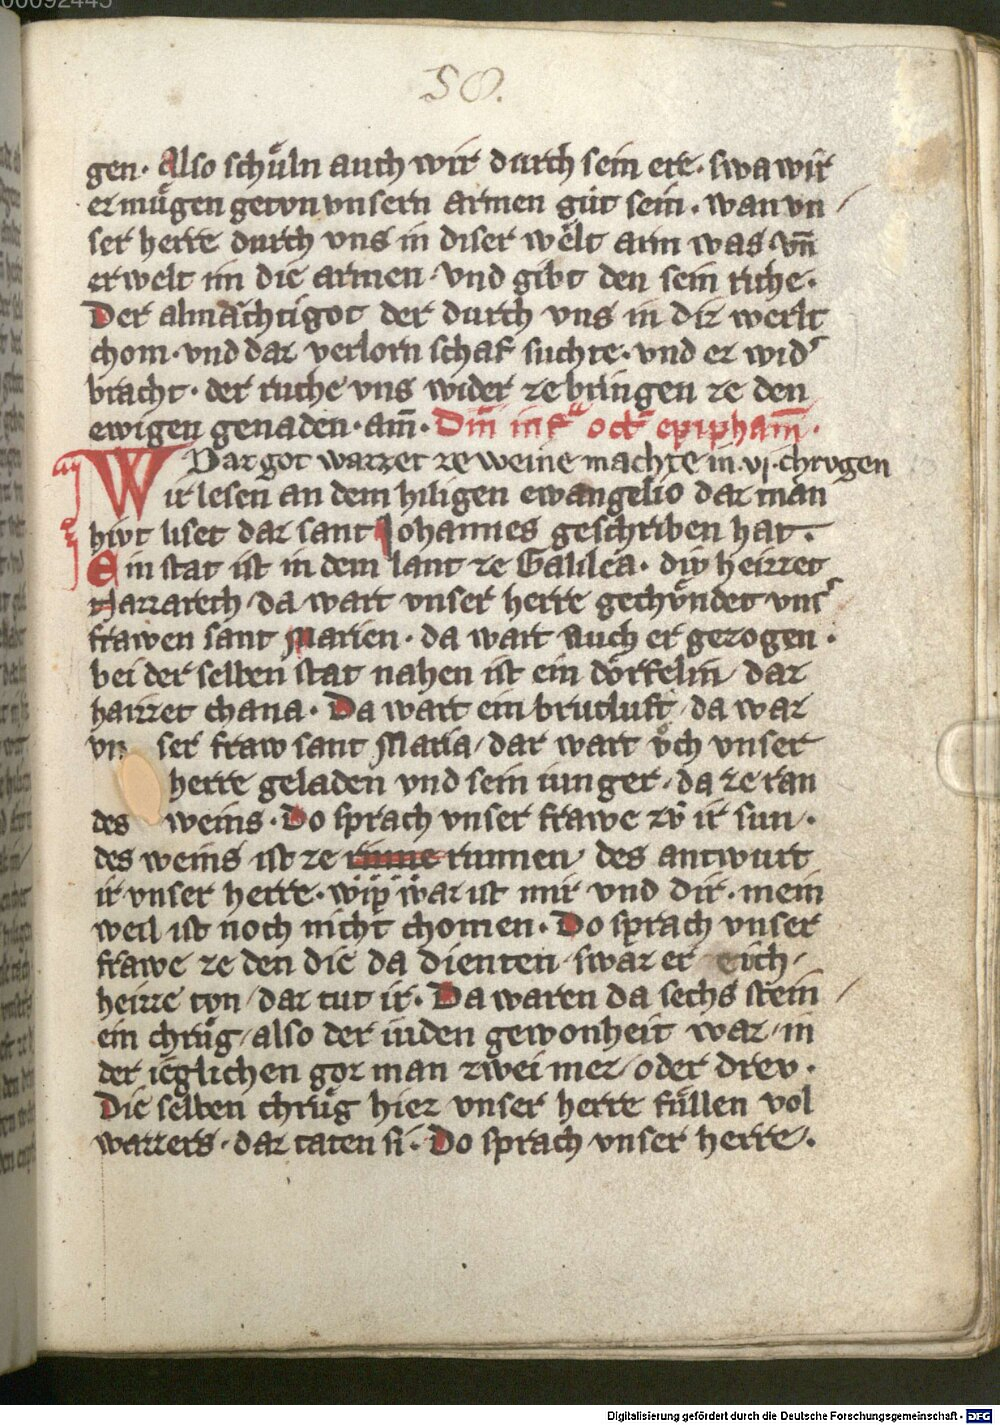 00092445
58.
gen. Also schuͤln auch wir durch sein ere. swa wir
er muͤgen getvn vnsern armen guͤt sein. wan vn /
ser herre durch vns in diser weͤlt arm was. vn̄
erwelt im die armen. vnd gibt den sein riche.
Der almaͤchtigot der durch vns in diz werlt
chom. vnd daz verlorn schaf suchte. vnd er wid᾽
bracht. der ruche vns wider ze bringen ze den
ewigen genaden. am̄.
Daz got wazzer ze weine machte in .vj. chrvgen
Wir lesen an dem hiligen ewangelio daz man
hivt liset daz sant Johannes geschriben hat.
Ein stat ist in dem lant ze Galilea. div heizzet
Nazzareth / da wart vnser herre gechuͤndet vns᾽
frawen sant Marien. da wart auch er gezogen.
bei der selben stat nahen ist ein doͤrffelin / daz
haizzet chana. Da wart ein brutluft / da waz
vn ser fraw sant Maria / dar wart oͮch vnser
herre geladen vnd sein iunger. da ze ran
des weins. Do sprach vnser frawe zuͦ ir sun.
des weins ist ze runnen / des antwurt
ir vnser herre. wip waz ist mir vnd dir. mein
weil ist noch nicht chomen. Do sprach vnser
frawe ze den die da dienten / swaz er eich /
heizze tvn / daz tut ir. Da waren da sechs stein /
ein chruͤg / also der iuden gewonheit waz / in
der ieglichen goz man zwei mez / oder drev.
Die selben chruͤg hiez vnser herre fuͤllen vol
wazzers. daz taten si. Do sprach vnser herre.
Digitalisierung gefördert durch die Deutsche Forschungsgemeinschaft - DFG